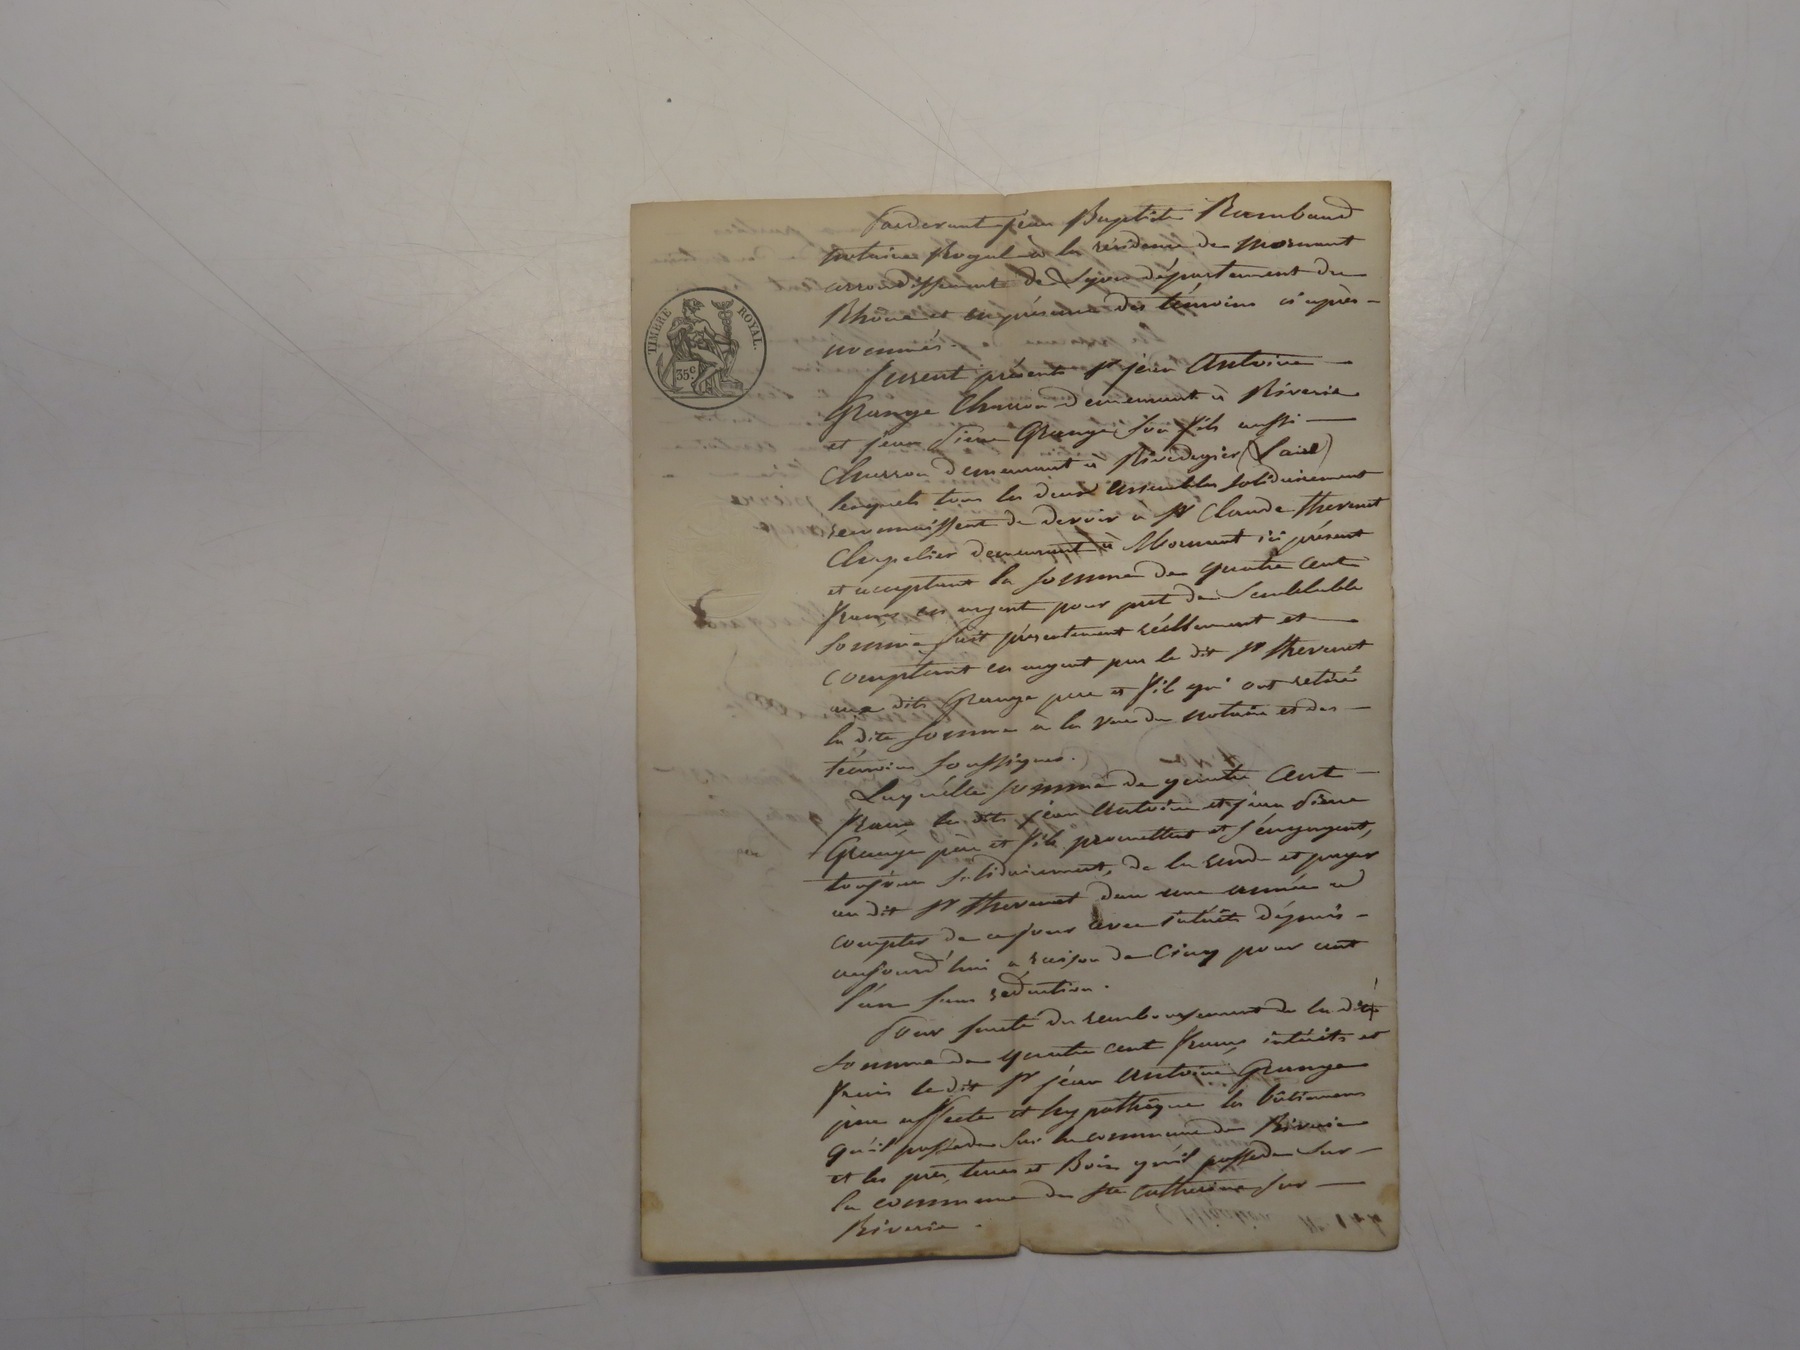 Pardevant jean Baptiste Rambaud
notaire Royal à la résidence de Mornant
arrondissement de Lyon département du
Rhône et en présence des témoins ci après-
nommés.
TIMBRE ROYAL.
35c.
furent présents Sr jean Antoine
Grange Charron demeurant à Riverie
et jean Pierre Grange son fils aussi
Charron demeurant à Rivedegier (Loire)
lesquels tous les deux ensembles solidairement
reconnaissent de devoir à Sr Claude thevenet
Chapelier demeurant à Mornant ici présent
et acceptant la somme de quatre cent
francs en argent pour pret de semblable
somme fait présentement réellement et
comptant en argent par le dit Sr thevenet
aux dits Grange pere et fils qui ont retiré
la dite somme à la vue du notaire et des
témoins soussignés.
Laquelle somme de quatre cent
francs les dits jean Antoine et jean Pierre
Grange père et fils promettent et s'engagent,
toujours solidairement, de la rendre et payer
au dit Sr thevenet dans une année a
compter de ce jour avec intérêts dépuis
aujourd'hui a raison de Cinq pour cent
l'an sans réduction.
Pour sureté du remboursement de la dite
somme de quatre cent francs, intérêts et
frais le dit Sr jean Antoine Grange
pere affecte et hypothèque les bâtimens
qu'il possede sur la commune de Riverie
et les prés, terres et Bois qu'il possede sur
la commune de Ste Catherine sur
Riverie.